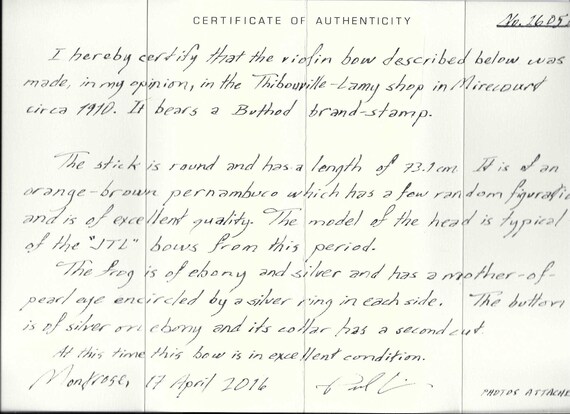 CERTIFICATE OF AUTHENTICITY
No. 1605
I hereby certify that the violin bow described below was
made, in my opinion, in the Thibouville-Lamy shop in Mirecourt
circa 1910. It bears a Buthod brand-stamp.
The stick is round and has a length of 73.1 cm It is of an
orange-brown pernambuco which has a few random figuratio
and is of excellent quality. The model of the head is typical
of the "JTL" bows from this period.
The frog is of ebony and silver and has a mother-of-
pearl eye encircled by a silver ring in each side. The button
is of silver on ebony and its collar has a second cut
At this time this bow is in excellent condition.
Montrose, 17 April 2016
PHOTOS ATTACHE